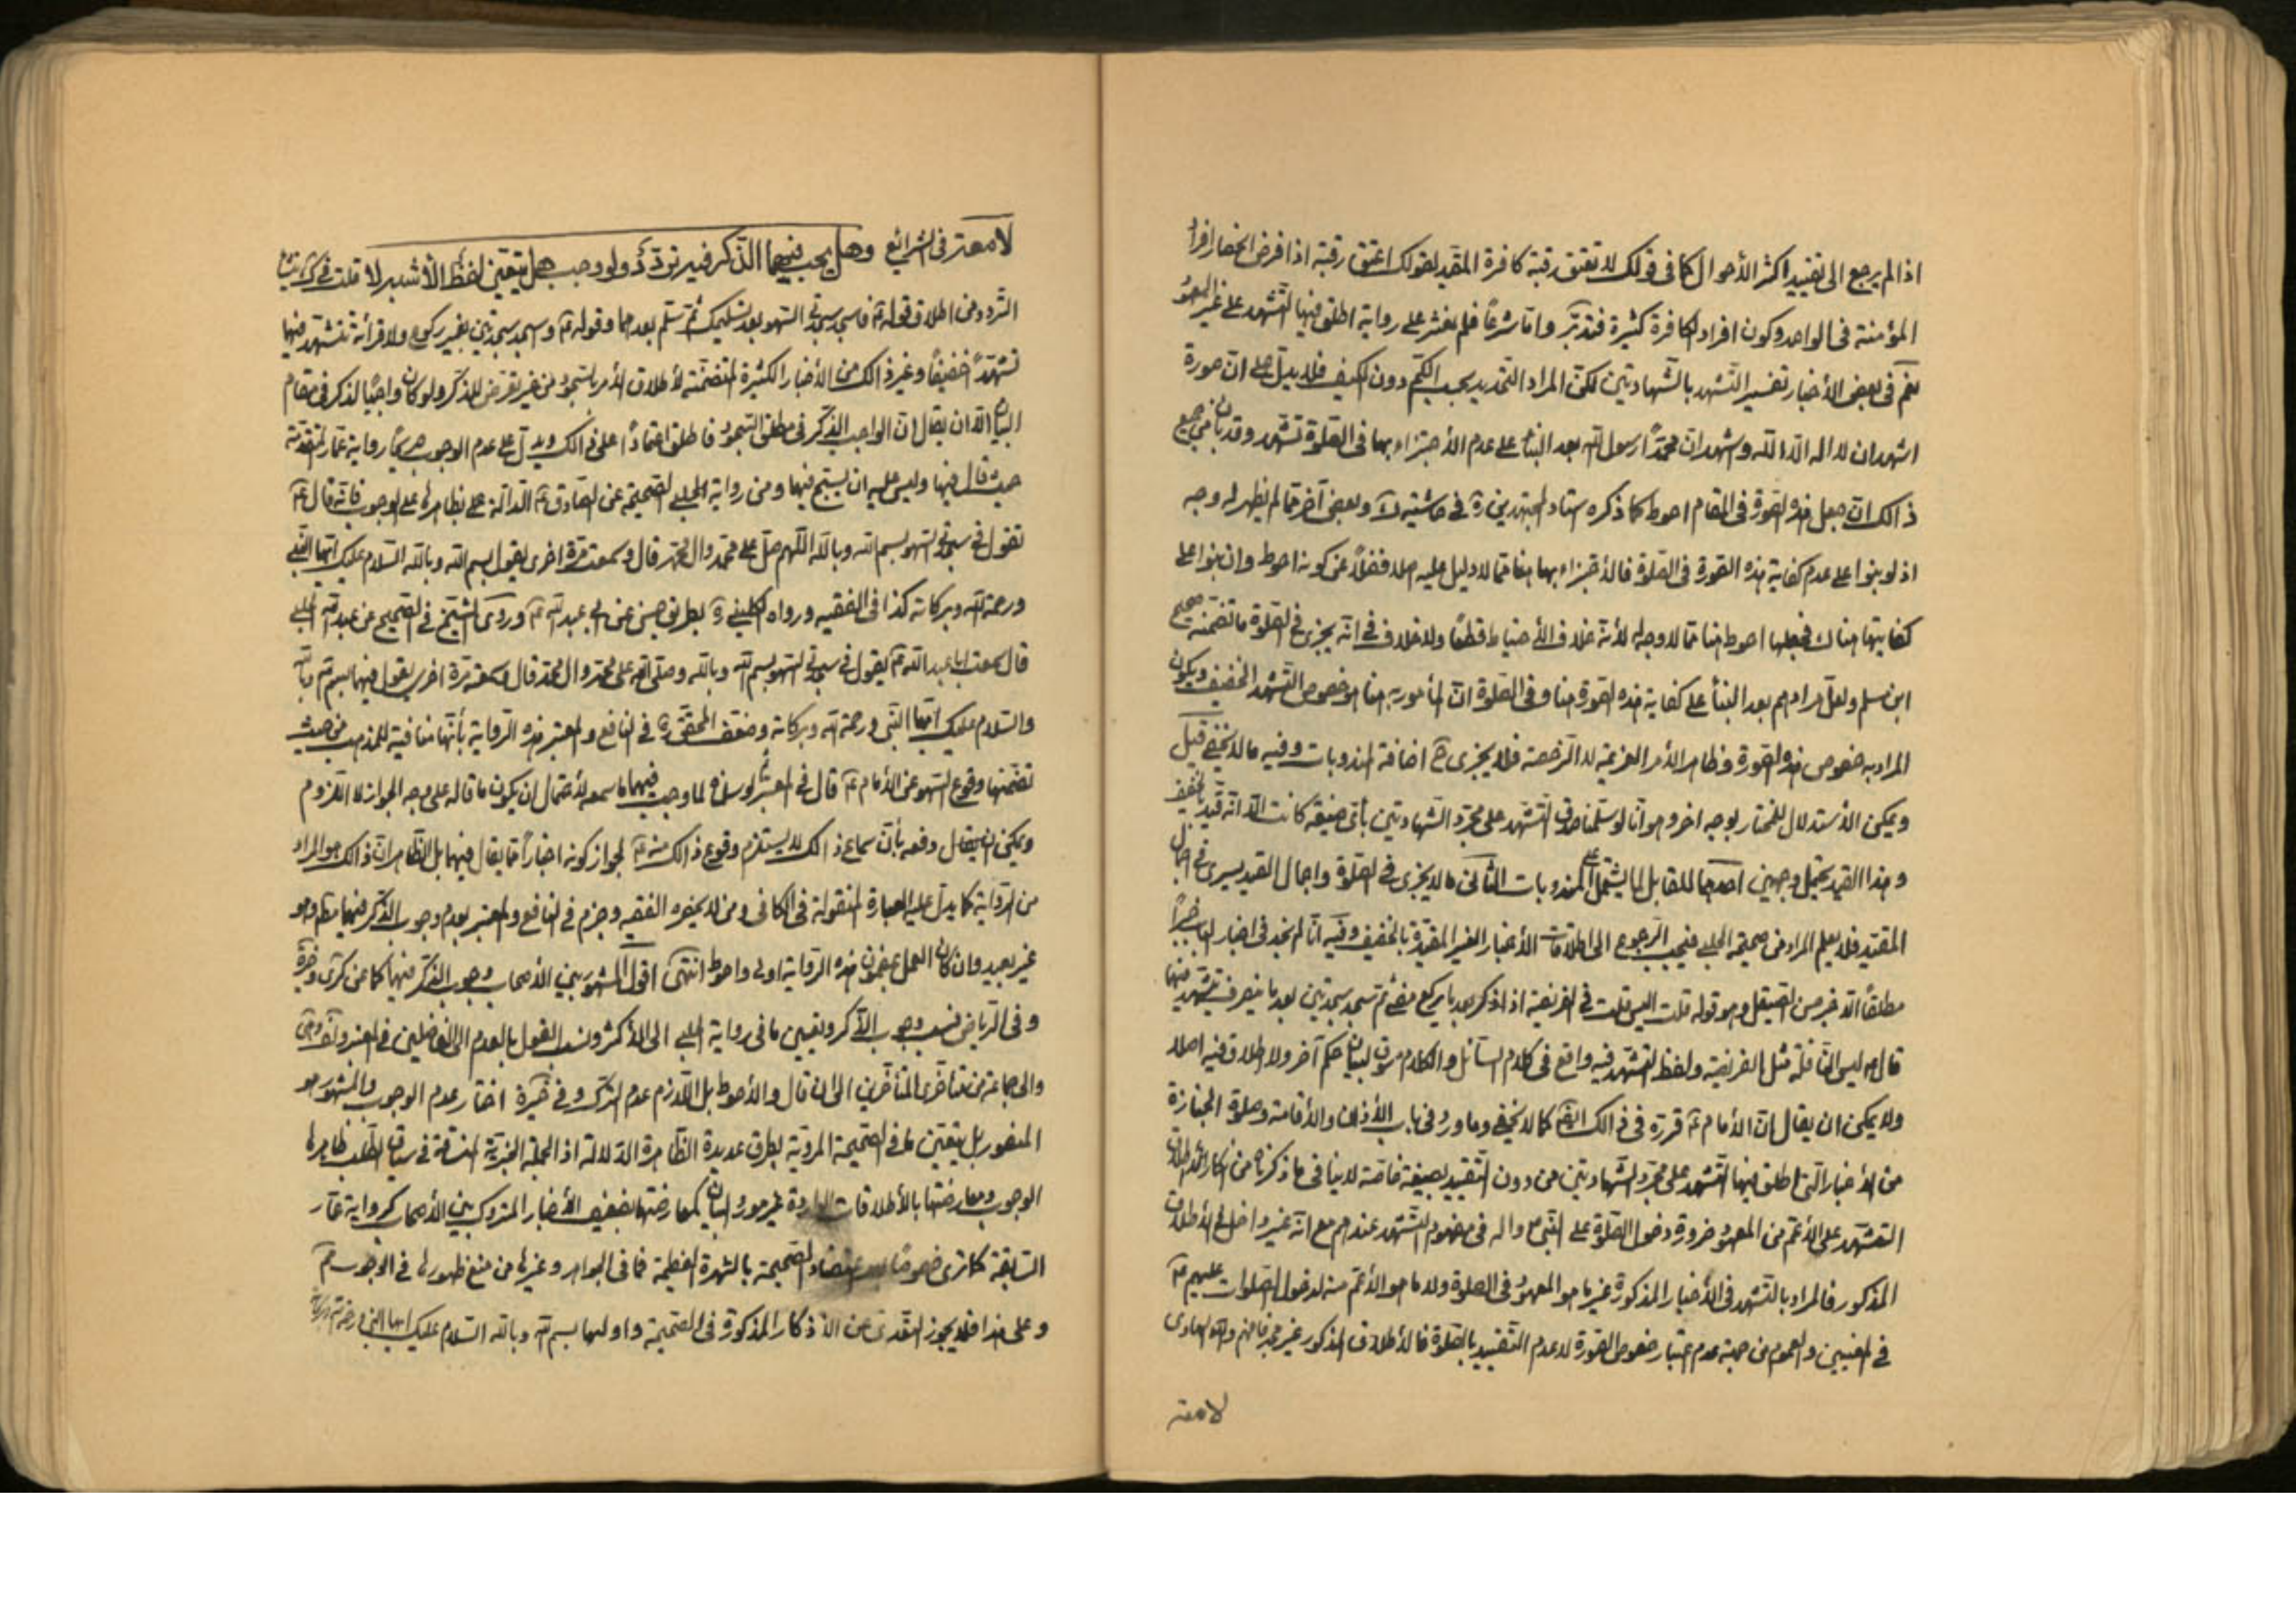 اذا لم يرجع الى تقييد اكثر الأحوال كما فى قولك لا تعتق رقبة كافرة المقيد لقولك اعتق رقبة اذا فرض انحصار افراد
المؤمنة فى الواحد وكون افراد الكافرة كثيرة فتدبّر وامّا شرعًا فلم نعثر على رواية اطلق فيها التشهد على غير المعهود
نعم فى بعض الأخبار تفسير التشهد بالشهادتين لكن المراد التحديد بحسب الكم دون الكيف فلا يدل على ان صورة
اشهد ان لا اله الا الله واشهد ان محمّدًا رسول الله بعد البناء على عدم الأجتزاء بها فى الصّلوة تشهد وقد بان من جميع
ذالك ان جعل هذه الصورة فى المقام احوط كما ذكره استاد المجتهدين ره فى حاشيته وبعض آخر ممّا لم يظهر له وجه
اذ لو بنوا على عدم كفاية هذه الصورة فى الصّلوة فالأجتزاء بها هنا ممّا لا دليل عليه اصلا فضلًا عن كونه احوط وان بنوا على
كفايتها هناك فجعلها احوط هنا ممّا لا وجه له لأنه خلاف الأحتياط قطعًا ولا خلاف فى انّه يجزى فى الصّلوة ما تضمّنه صحيح
ابن مسلم ولعل مرادهم بعد البناء على كفاية هذه الصورة هنا وفى الصّلوة انّ المأمور به هنا هو خصوص التشهد الخفيف ويكون
المراد به خصوص هذه الصورة وظاهر الأمر العزيمة لا الرّخصة فلا يجزى ح اضافة المندوبات وفيه ما لا يخفى قيل
ويمكن الأستدلال للمختار بوجه اخر وهو انّا لو سلّمنا صدق التّشهد على مجرّد الشّهادتين بأىّ صيغة كانت الّا انّه قيّد بالخفيف
وهذا القيد يحتمل وجهين احدهما المقابل لما يشتمل على المندوبات الثّانى ما لا يجزى فى الصّلوة واجمال القيد يسرى فى اجمال
المقيّد فلا يعلم المراد من صحيحة الحلبى فيجب الرّجوع الى اطلاقات الأخبار الغير المقيّدة بالخفيف وفيه انّا لم نجد فى اخبار الباب خبرًا
مطلقًا الّا خبر حسن الصيقل وهو قوله قلت اليس قلت فى الفريضة اذا ذكر بعد ما يركع مضى ثم سجد سجدتين بعد ما ينصرف يتشهد فيها
قال ليس النّافلة مثل الفريضة ولفظ التّشهد فيه واقع فى كلام السّائل والكلام مسوق لبيان حكم آخر ولا اطلاق فيه اصلا
ولا يمكن ان يقال انّ الأمام ع قرّره فى ذالك كما لا يخفى وما ورد فى باب الأذان والأقامة وصلوة الجنازة
من الأخبار الّتى اطلق فيها التّشهد على مجرّد الشّهادتين من دون التّقييد بصيغة خاصّة لا ينافى ما ذكرناه من انكار اطلاق
التّشهّد على الأعمّ من المعهود ضرورة دخول الصّلوة على النّبى واله فى مفهوم التّشهد عندهم مع انّه غير داخل فى الأطلاق
المذكور فالمراد بالتّشهد فى الأخبار المذكورة غير ما هو المعهود فى الصلوة ولا ما هو الأعم منه لدخول الصلوات عليهم ع
فى المعنيين والعموم من جهة عدم اعتبار خصوص الصّورة لا عدم التّقييد بالصّلوة فالأطلاق المذكور غير والله الهادى
لامعة
لامعة فى الشرائع وهل يجب فيهما الذّكر فيه تردّد ولو وجب هل يتعيّن لفظ الأشبه لا قلت
التردد من اطلاق قوله ع فاسجد سجدتى السّهو بعد تسليمك ثمّ تسلّم بعدهما وقوله ع واسجد سجدتين بغير ركوع ولا قرائة تتشهّد فيها
تشهّدًا خفيفًا وغير ذالك من الأخبار الكثيرة المتضمّنة لأطلاق الأمر بالسّجود من غير تعرّض للذّكر ولو كان واجبًا لذكر فى مقام
البيان الّا ان يقال انّ الواجب الذّكر فى مطلق السّجود فاطلق اعتمادًا على ذالك ويدلّ على عدم الوجوب صريحًا رواية عمّار المتقدّمة
حيث قال فيها وليس عليه ان يسبّح فيها ومن رواية الحلبى الصّحيحة عن الصّادق ع الدّالّة على بظاهرها على الوجوب فانّه قال ع
تقول فى سجدتى السّهو بسم الله وبالله اللّهم صلّ على محمّد وال محمّد قال وسمعته مرّة اخرى يقول بسم الله وبالله السّلام عليك ايّها النّبى
ورحمة الله وبركاته كذا فى الفقيه ورواه الكلينى ره بطريق حسن عن ابى عبد الله ع وروى الشّيخ فى الصّحيح عن عبيد الله الحلبى
قال سمعت ابا عبد الله ع يقول فى سجدتى السّهو بسم الله وبالله وصلّى الله على محمّد وال محمّد قال وسمعته مرّة اخرى يقول فيهما بسم الله وبالله
والسّلام عليك ايّها النّبى ورحمة الله وبركاته وضعّف المحقّق ره فى النافع والمعتبر هذه الرّواية بأنّها منافية للمذهب من حيث
تضمّنها وقوع السّهو عن الأمام ع قال فى المعتبر ثم لو سلّمناه لما وجب فيهما ما سمعه لأحتمال ان يكون ما قاله على وجه الجواز لا اللزوم
ويمكن ان يقال دفعه بأنّ سماع ذالك لا يستلزم وقوع ذالك منه ع لجواز كونه اخبارًا عمّا يقال فيهما بل الظّاهر انّ ذالك هو المراد
من الرّواية كما يدلّ عليه العبارة المنقولة فى الكافى ومن لا يحضره الفقيه وجزم فى النافع والمعتبر بعدم وجوب الذّكر فيهما مطلقا وهو
غير بعيد وان كان العمل بمضمون هذه الرّواية اولى واحوط انتهى اقول المشهور بين الأصحاب وجوب الذّكر فيهما كما عن كرى
وفى الرّياض نسب وجوب الذّكر وتعيين ما فى رواية الحلبى الى الأكثر ونسب القول بالعدم الى الفاضلين فى المعتبر
والى جماعة من متأخرى المتأخّرين الى ان قال والأحوط بل اللّازم عدم التّرك وفى خيرة اختار عدم الوجوب والمشهور هو
المنصور بل يتعيّن ما فى الصّحيحة المرويّة بطرق عديدة الظّاهرة الدّلالة اذ الجملة الخبريّة المنساقة فى سياق الطّلب ظاهرها
الوجوب ومعارضتها بالأطلاقات الواردة غير مورد البيان كمعارضتها بضعيف الأخبار المتروك بين الأصحاب كرواية عمّار
السّابقة كما ترى خصوصًا بعد اعتضاد الصّحيحة بالشهرة العظيمة فما فى الجواهر وغيرها من منع ظهورها فى الوجوب
وعلى هذا فلا يجوز التّعدّى عن الأذكار المذكورة فى الصّحيحة واوليها بسم الله وبالله السّلام عليك ايّها النّبى ورحمة الله وبركاته